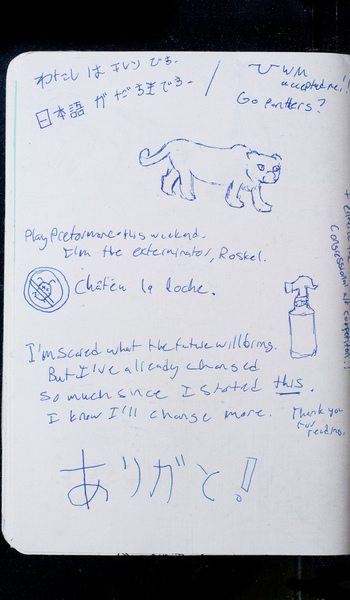 わたし は
日本語 が
UWM
accepted me!!
Go panthers?
Play Preformance this weekend.
I'm the exterminator, Roskel.
Chateu la Roche.
I'm scared what the future will bring.
But I've already changed
so much since I started this.
I know I'll change more.
Thank you
for
reading.
ありガと!
Congressional art competition!!